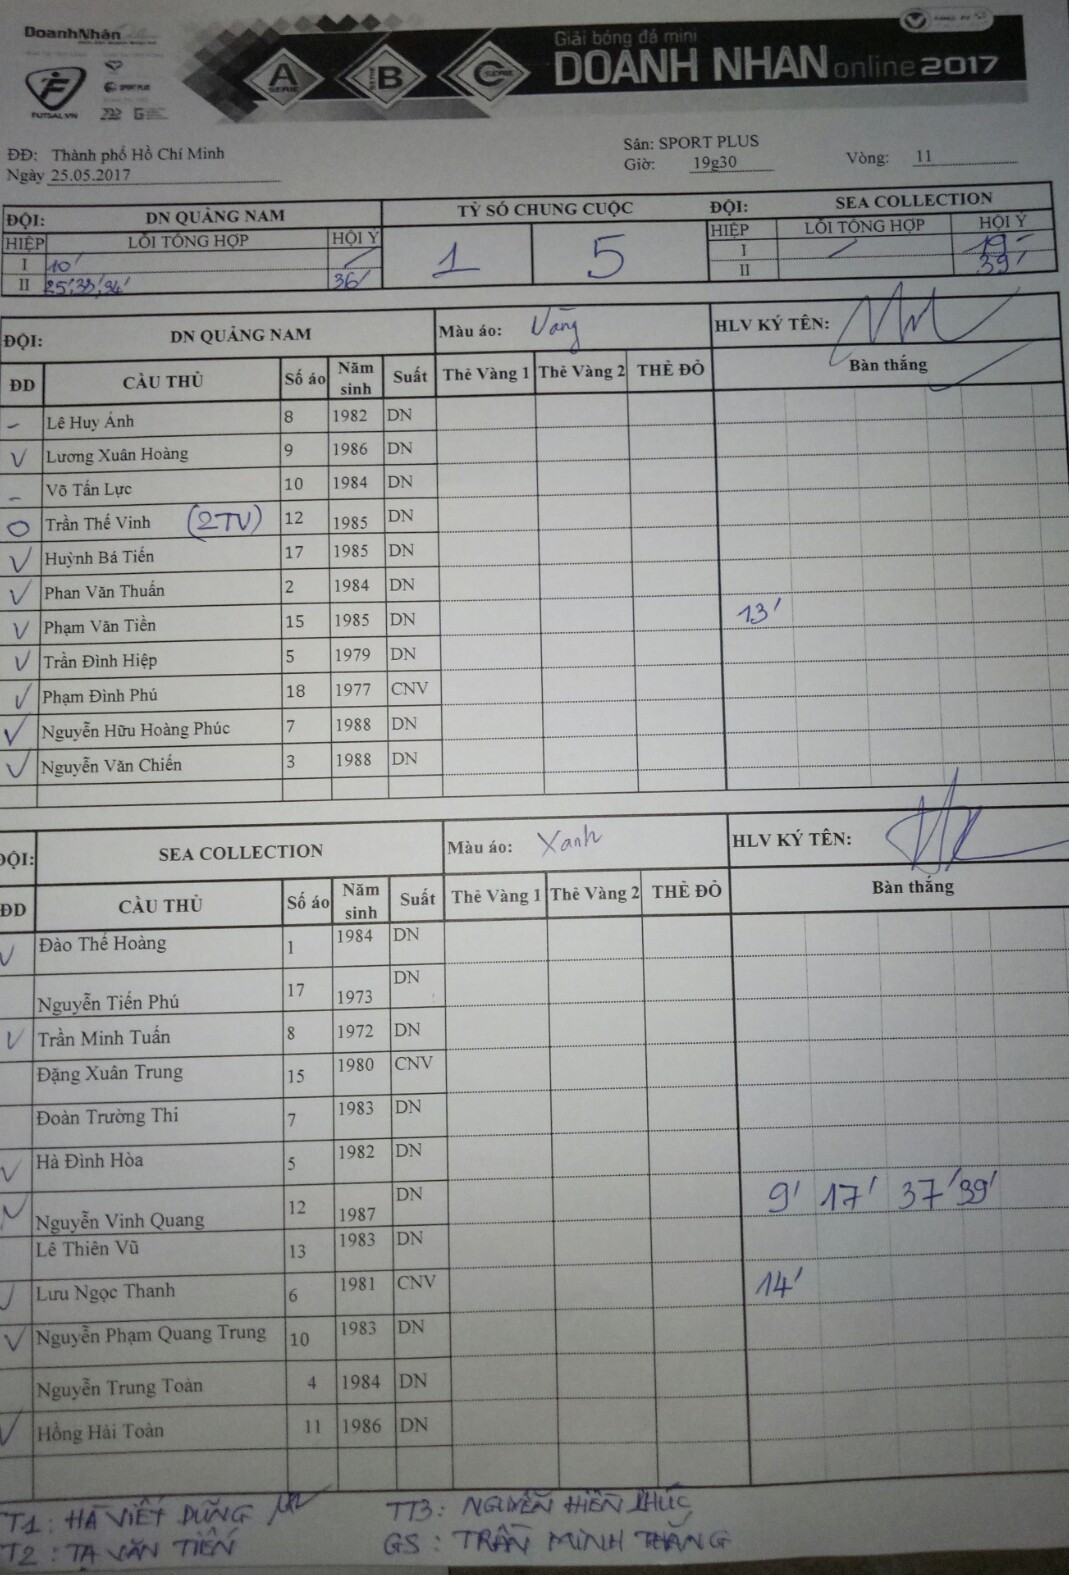 DoanhNhân
FUTSAL.VN
SPORT PLUS
A SERIE
B SERIE
C SERIE
Giải bóng đá mini
DOANH NHAN online 2017
ĐĐ: Thành phố Hồ Chí Minh
Sân: SPORT PLUS
Ngày 25.05.2017
Giờ: 19g30
Vòng: 11
ĐỘI: DN QUẢNG NAM TỶ SỐ CHUNG CUỘC ĐỘI: SEA COLLECTION
HIỆP LỖI TỔNG HỢP HỘI Ý 1 5 HIỆP LỖI TỔNG HỢP HỘI Ý
I 10' I 19'
II 25', 33', 34' 36' II 39'
ĐỘI: DN QUẢNG NAM Màu áo: Vàng HLV KÝ TÊN:
ĐD CẦU THỦ Số áo Năm sinh Suất Thẻ Vàng 1 Thẻ Vàng 2 THẺ ĐỎ Bàn thắng
- Lê Huy Ánh 8 1982 DN
V Lương Xuân Hoàng 9 1986 DN
- Võ Tấn Lực 10 1984 DN
O Trần Thế Vinh (2TV) 12 1985 DN
V Huỳnh Bá Tiến 17 1985 DN
V Phan Văn Thuấn 2 1984 DN
V Phạm Văn Tiền 15 1985 DN 13'
V Trần Đình Hiệp 5 1979 DN
V Phạm Đình Phú 18 1977 CNV
V Nguyễn Hữu Hoàng Phúc 7 1988 DN
V Nguyễn Văn Chiến 3 1988 DN
ĐỘI: SEA COLLECTION Màu áo: Xanh HLV KÝ TÊN:
ĐD CẦU THỦ Số áo Năm sinh Suất Thẻ Vàng 1 Thẻ Vàng 2 THẺ ĐỎ Bàn thắng
V Đào Thế Hoàng 1 1984 DN
Nguyễn Tiến Phú 17 1973 DN
V Trần Minh Tuấn 8 1972 DN
Đặng Xuân Trung 15 1980 CNV
Đoàn Trường Thi 7 1983 DN
V Hà Đình Hòa 5 1982 DN
V Nguyễn Vinh Quang 12 1987 DN 9' 17' 37' 39'
Lê Thiên Vũ 13 1983 DN
V Lưu Ngọc Thanh 6 1981 CNV 14'
V Nguyễn Phạm Quang Trung 10 1983 DN
Nguyễn Trung Toàn 4 1984 DN
V Hồng Hải Toàn 11 1986 DN
T1: HÀ VIẾT DŨNG TT3: NGUYỄN HIỀN PHÚC
T2: TẠ VĂN TIẾN GS: TRẦN MINH THẮNG